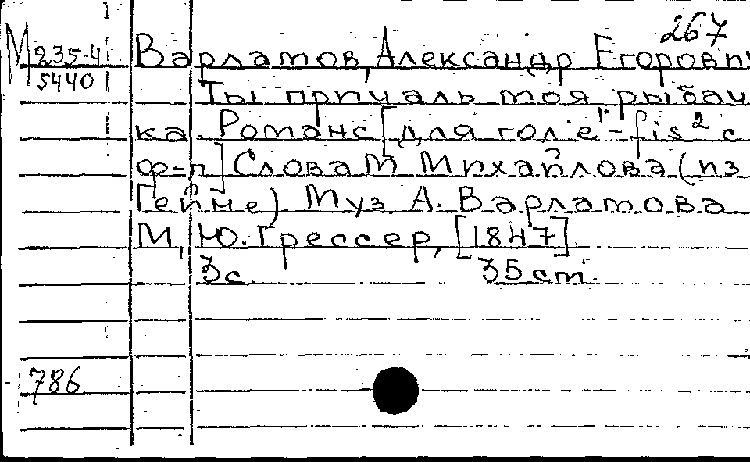 267
М 235-4 Варламов, Александр Егорович
5440 Ты причаль моя рыбач
ка. Романс [для гол. e¹-fis² с
ф-п] Слова М Михайлова (из
Гейне). Муз А. Варламова
М, Ю. Грессер, [1847]
3с 35 cm.
786